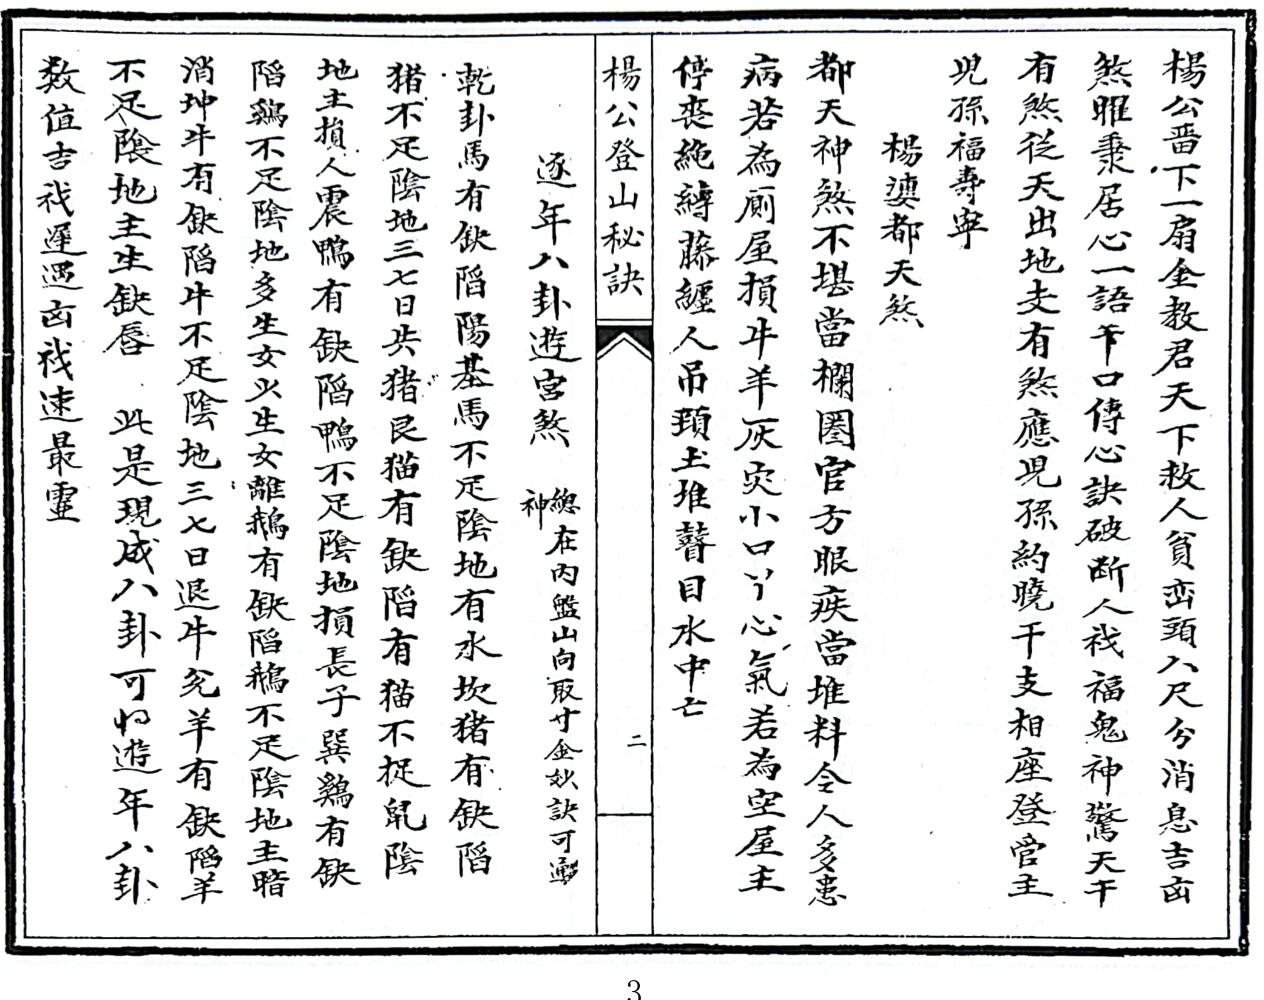 楊公晋下一扇金教君天下救人貧巒頭八尺分消息吉凶
煞曜秉居心一語千口傳心訣破断人禍福鬼神驚天干
有煞從天出地支有煞應児孫約曉干支相座登管主
児孫福寿寧
楊遶都天煞
都天神煞不堪當欄圈官方眼疾當堆料令人多患
病若為厠屋損牛羊灰灾小口丫心氣若為空屋主
停丧絶縛藤纏人吊頸土堆瞽目水中亡
楊公登山秘訣
二
逐年八卦遊宮煞
總在内盤山向取廿金妙訣可通
神
乾卦馬有缺陷陽基馬不足陰地有水坎猪有缺陷
猪不足陰地三七日共猪艮猫有缺陷有猫不捉鼠陰
地主損人震鴨有缺陷鴨不足陰地損長子巽鷄有缺
陷鷄不足陰地多生女少生女離鵝有缺陷鵝不足陰地主暗
消坤牛有缺陷牛不足陰地三七日退牛兊羊有缺陷羊
不足陰地主生缺唇 此是現成八卦可將遊年八卦
数值吉我遲遇凶我速最靈
3